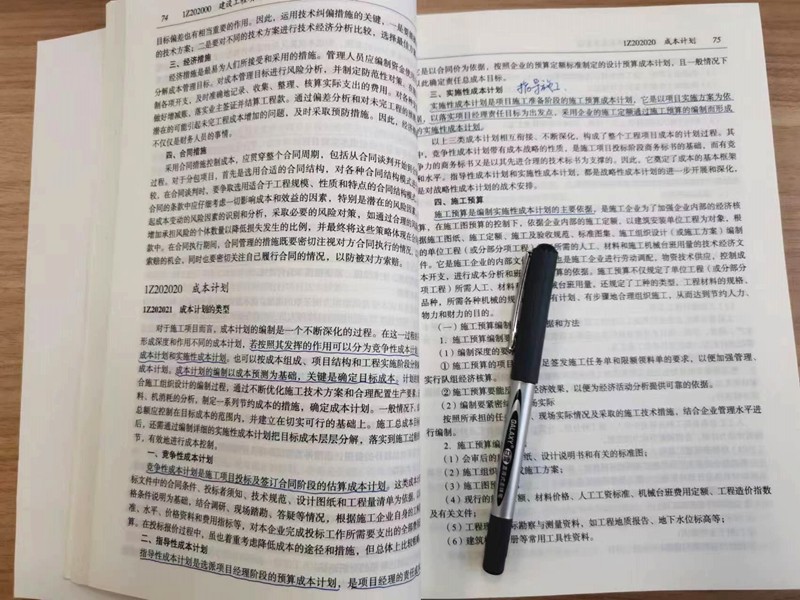 74 1Z202000 建设工程项
目标偏差也有相当重要的作用。因此，运用技术纠偏措施的关键，一是要
的技术方案；二是要对不同的技术方案进行技术经济分析比较，选择最佳
三、经济措施
经济措施是最易为人们所接受和采用的措施。管理人员应编制资金使用
分解成本管理目标。对成本管理目标进行风险分析，并制定防范性对策。
制各项开支，及时准确地记录、收集、整理、核算实际支出的费用。对各种
做好增减账、落实业主签证并结算工程款。通过偏差分析和对未完工程
潜在的可能引起未完工程成本增加的问题，及时采取预防措施。因此，经济
不仅仅是财务人员的事情。
四、合同措施
采用合同措施控制成本，应贯穿整个合同周期，包括从合同谈判开始到
过程。对于分包项目，首先是选用适合的合同结构，对各种合同结构模式
较，在合同谈判时，要争取选用适合于工程规模、性质和特点的合同结构模式
合同的条款中应仔细考虑一切影响成本和效益的因素，特别是潜在的风险因素。
起成本变动的风险因素的识别和分析，采取必要的风险对策，如通过合理的
增加承担风险的个体数量以降低损失发生的比例，并最终将这些策略体现在合
款中。在合同执行期间，合同管理的措施既要密切注视对方合同执行的情况，
索赔的机会；同时也要密切关注自己履行合同的情况，以防被对方索赔。
1Z202020 成本计划
1Z202021 成本计划的类型
对于施工项目而言，成本计划的编制是一个不断深化的过程。在这一过程
形成深度和作用不同的成本计划，若按照其发挥的作用可以分为竞争性成本计
成本计划和实施性成本计划。也可以按成本组成、项目结构和工程实施阶段
成本计划。成本计划的编制以成本预测为基础，关键是确定目标成本。计划的
合施工组织设计的编制过程，通过不断优化施工技术方案和合理配置生产要素，
料、机消耗的分析，制定一系列节约成本的措施，确定成本计划。一般情况下，
总额应控制在目标成本的范围内，并建立在切实可行的基础上。施工总成本目标
后，还需通过编制详细的实施性成本计划把目标成本层层分解，落实到施工过程
节，有效地进行成本控制。
一、竞争性成本计划
竞争性成本计划是施工项目投标及签订合同阶段的估算成本计划。这类成本
标文件中的合同条件、投标者须知、技术规范、设计图纸和工程量清单为依据，以
格条件说明为基础，结合调研、现场踏勘、答疑等情况，根据施工企业自身的工
准、水平、价格资料和费用指标等，对本企业完成投标工作所需要支出的全部费
算。在投标报价过程中，虽也着重考虑降低成本的途径和措施，但总体上比较
二、指导性成本计划
指导性成本计划是选派项目经理阶段的预算成本计划，是项目经理的责任成
1Z202020 成本计划 75
是以合同价为依据，按照企业的预算定额标准制定的设计预算成本计划，且一般情况下
以此确定责任总成本目标。
三、实施性成本计划 指导施工
实施性成本计划是项目施工准备阶段的施工预算成本计划，它是以项目实施方案为依
据，以落实项目经理责任目标为出发点，采用企业的施工定额通过施工预算的编制而形成
的实施性成本计划。
以上三类成本计划相互衔接、不断深化，构成了整个工程项目成本的计划过程。其
中，竞争性成本计划带有成本战略的性质，是施工项目投标阶段商务标书的基础，而有竞
争力的商务标书又是以其先进合理的技术标书为支撑的。因此，它奠定了成本的基本框架
和水平。指导性成本计划和实施性成本计划，都是战略性成本计划的进一步开展和深化，
是对战略性成本计划的战术安排。
四、施工预算
施工预算是编制实施性成本计划的主要依据，是施工企业为了加强企业内部的经济核
算，在施工图预算的控制下，依据企业内部的施工定额，以建筑安装单位工程为对象，根
据施工图纸、施工定额、施工及验收规范、标准图集、施工组织设计（或施工方案）编制
的单位工程（或分部分项工程）所需的人工、材料和施工机械台班用量的技术经济文
件。它是施工企业的内部文 也是施工企业进行劳动调配，物资技术供应，控制成
本开支，进行成本分析和班 算的依据。施工预算不仅规定了单位工程（或分部分
项工程）所需人工、材料 械台班用量，还规定了工种的类型、工程材料的规格、
品种，所需各种机械的规 有计划、有步骤地合理组织施工，从而达到节约人力、
物力和财力的目的。
（一）施工预算编制 据和方法
1. 施工预算编制
（1）编制深度的要
① 施工预算的 足签发施工任务单和限额领料单的要求，以便加强管理、
实行队组经济核算。
② 施工预算要能 经济效果，以便为经济活动分析提供可靠的依据。
（2）编制要紧密 场实际
按照所承担的任 、现场实际情况及采取的施工技术措施，结合企业管理水平进
行编制。
2. 施工预算编
（1）会审后的 纸、设计说明书和有关的标准图；
（2）施工组织 或施工方案；
（3）施工图预
（4）现行的 额、材料价格、人工工资标准、机械台班费用定额、工程造价指数
及有关文件；
（5）工程现 勘察与测量资料，如工程地质报告、地下水位标高等；
（6）建筑材 册等常用工具性资料。
GALAXY